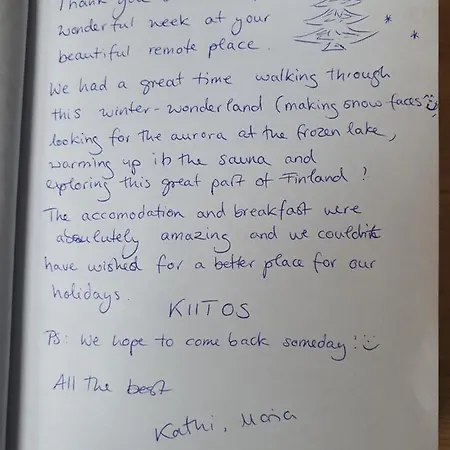 Thank you
wonderful week at your
beautiful remote place.
We had a great time walking through
this winter-wonderland (making snow faces☺,
looking for the aurora at the frozen lake,
warming up in the sauna and
exploring this great part of Finland!
The accomodation and breakfast were
absolutely amazing and we couldn't
have wished for a better place for our
holidays.
KIITOS
PS: We hope to come back someday! ☺
All the best
Kathi,